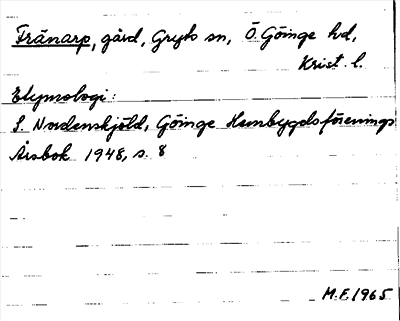 Tränarp, gård, Gryts sn, Ö. Göinge hd,
Krist. l.
Etymologi:
S. Nordenskjöld, Göinge Hembygdsförenings
Årsbok 1948, s. 8
M.E. 1965